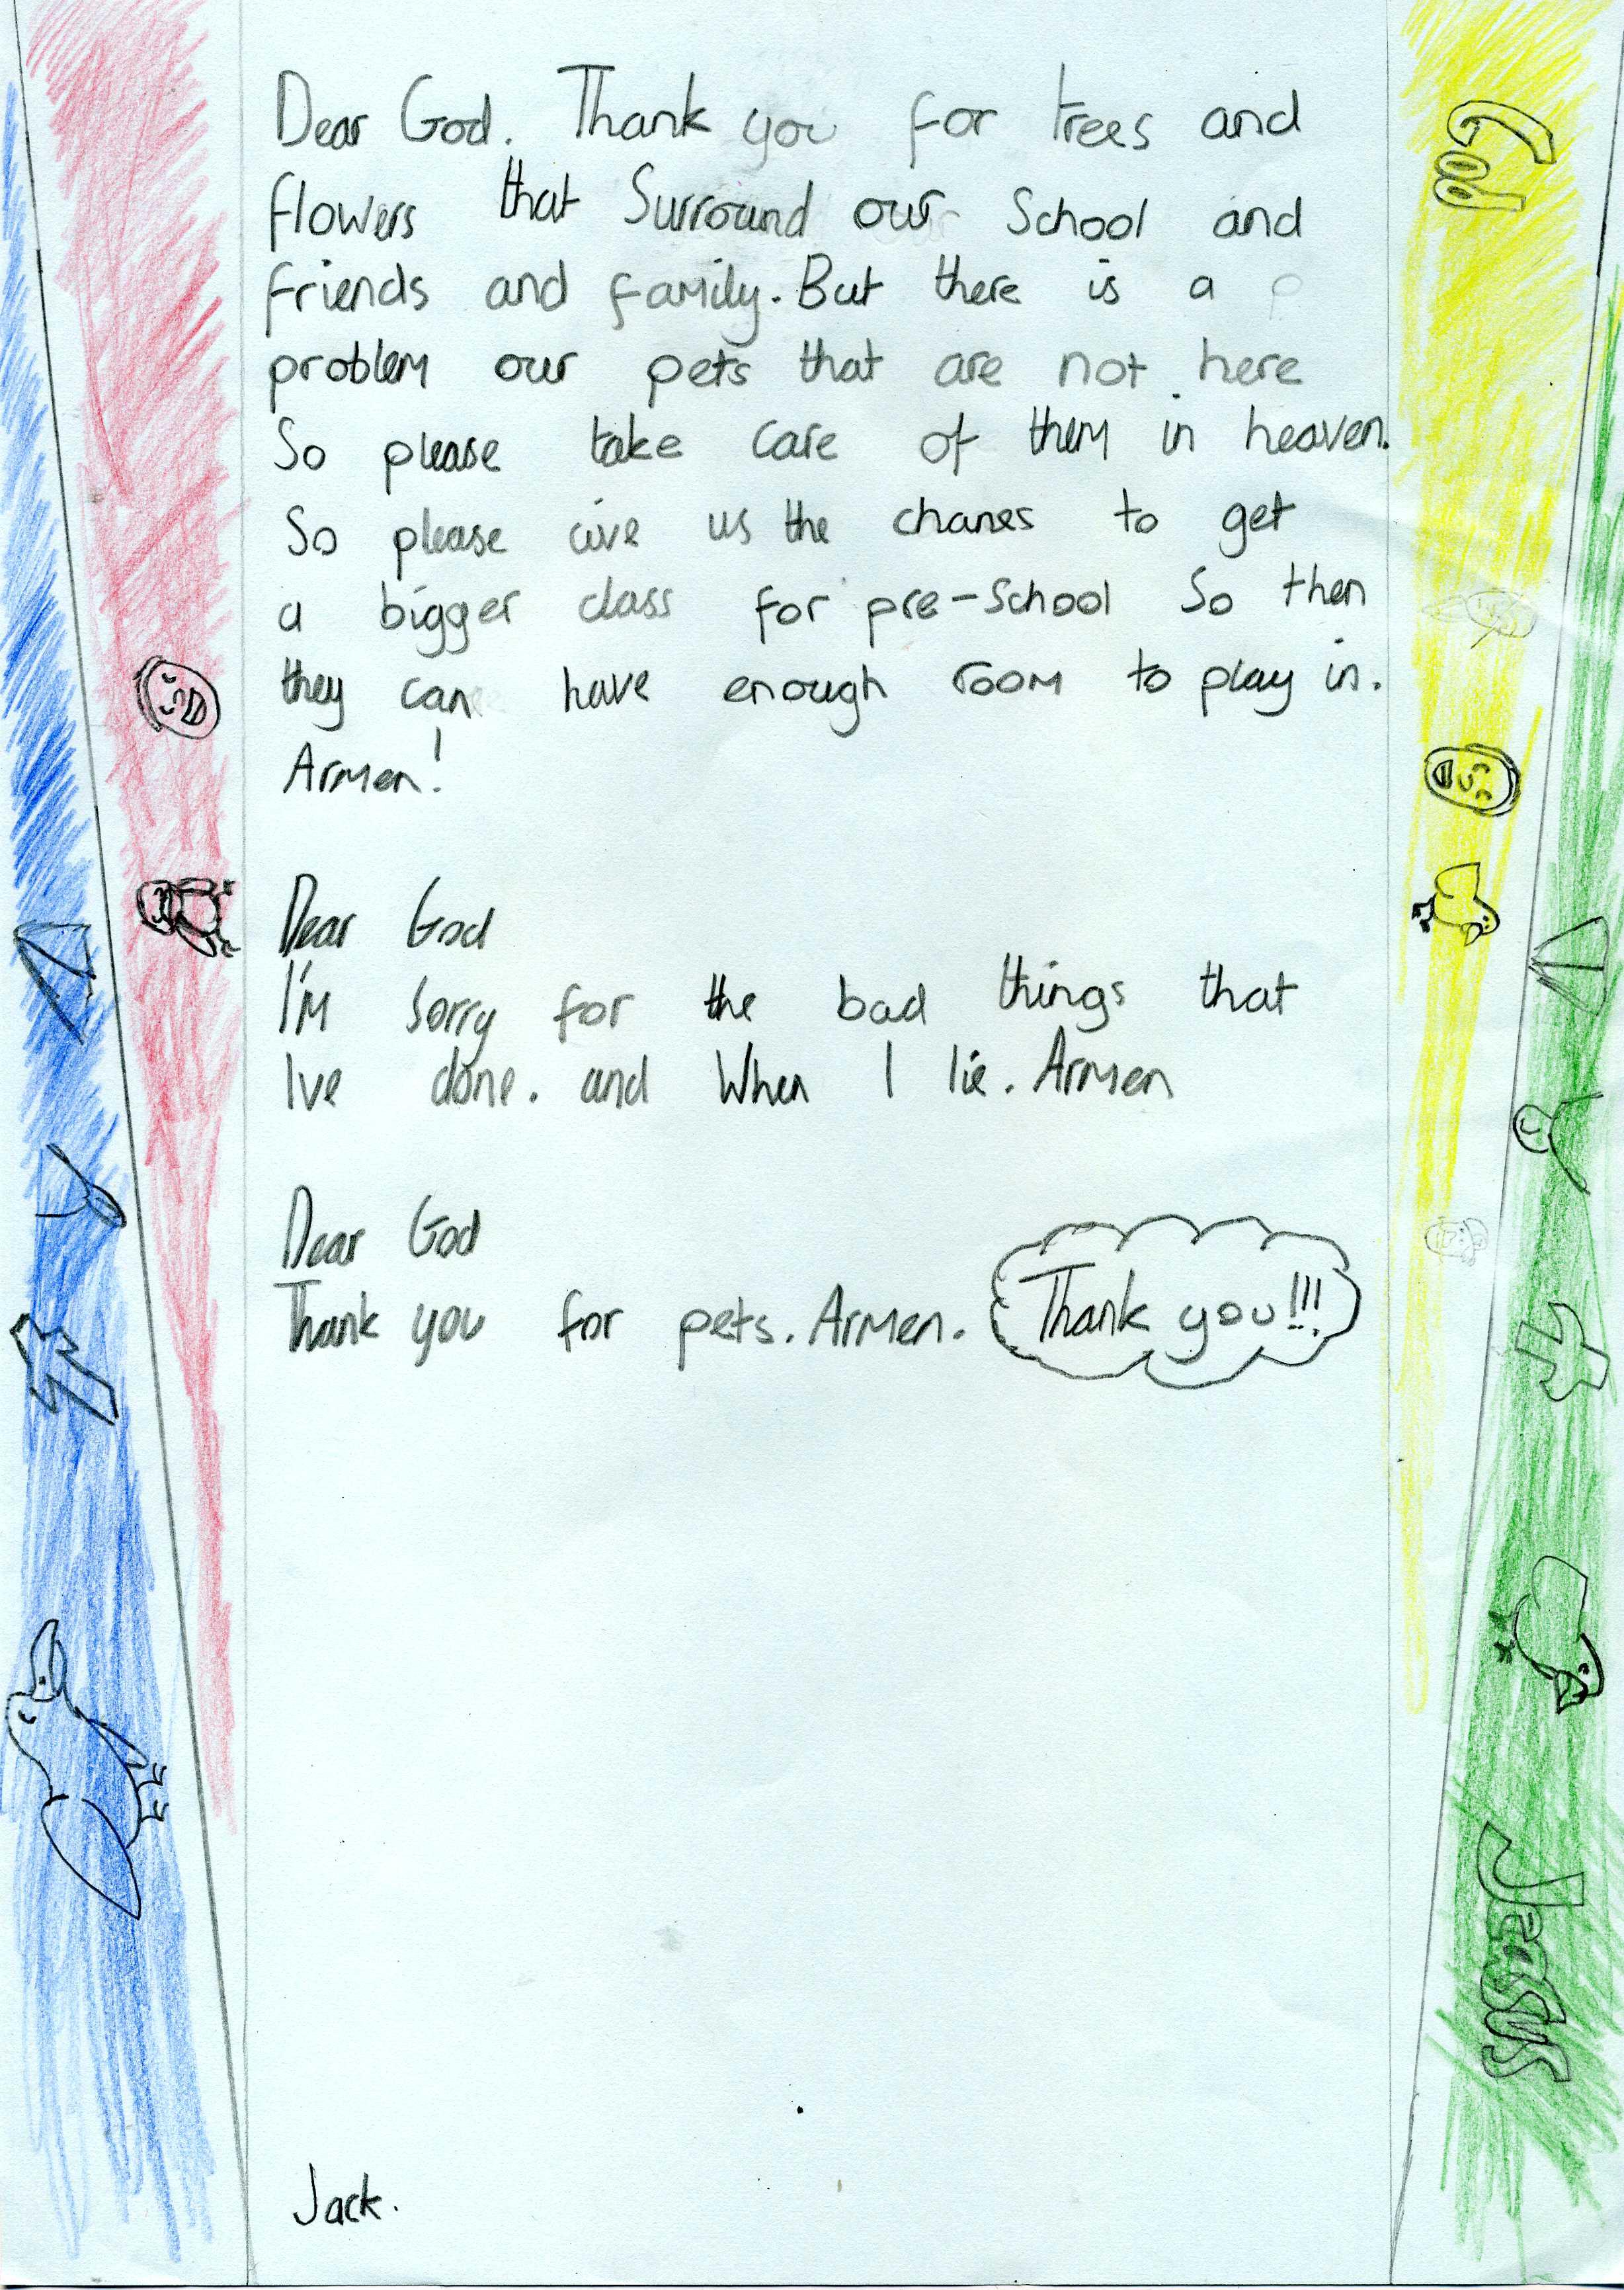 Dear God. Thank you for trees and
flowers that Surround our School and
friends and family. But there is a p
problem our pets that are not here
So please take care of them in heaven.
So please give us the chanes to get
a bigger class for pre-School So then
they can have enough room to play in.
Armen!
Dear God
I'm Sorry for the bad things that
Ive done. and When I lie. Armen
Dear God
Thank you for pets. Armen.
Thank you!!!
Jack.
God
Jesus